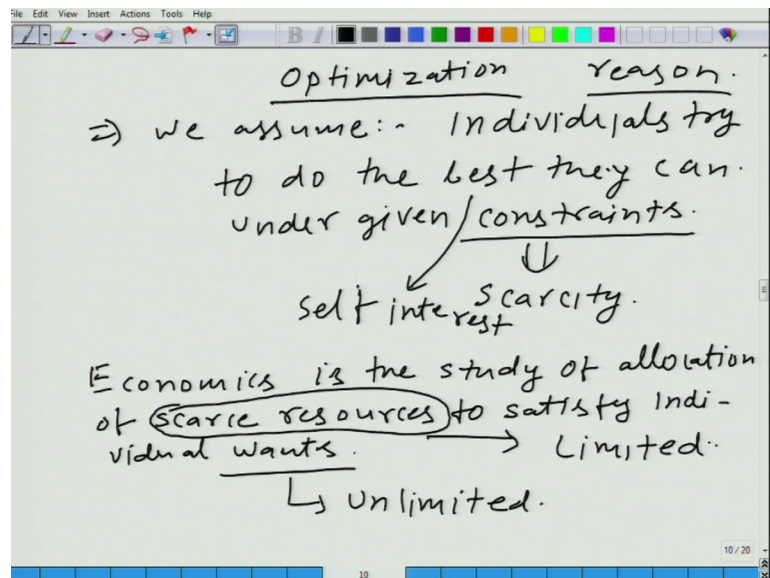 File Edit View Insert Actions Tools Help
Optimization reason.
=) we assume:- Individuals try
to do the best they can.
under given constraints.
self interest scarcity.
Economics is the study of allocation
of scarce resources to satisfy Indi-
vidual wants. Limited.
Unlimited.
10 / 20
10